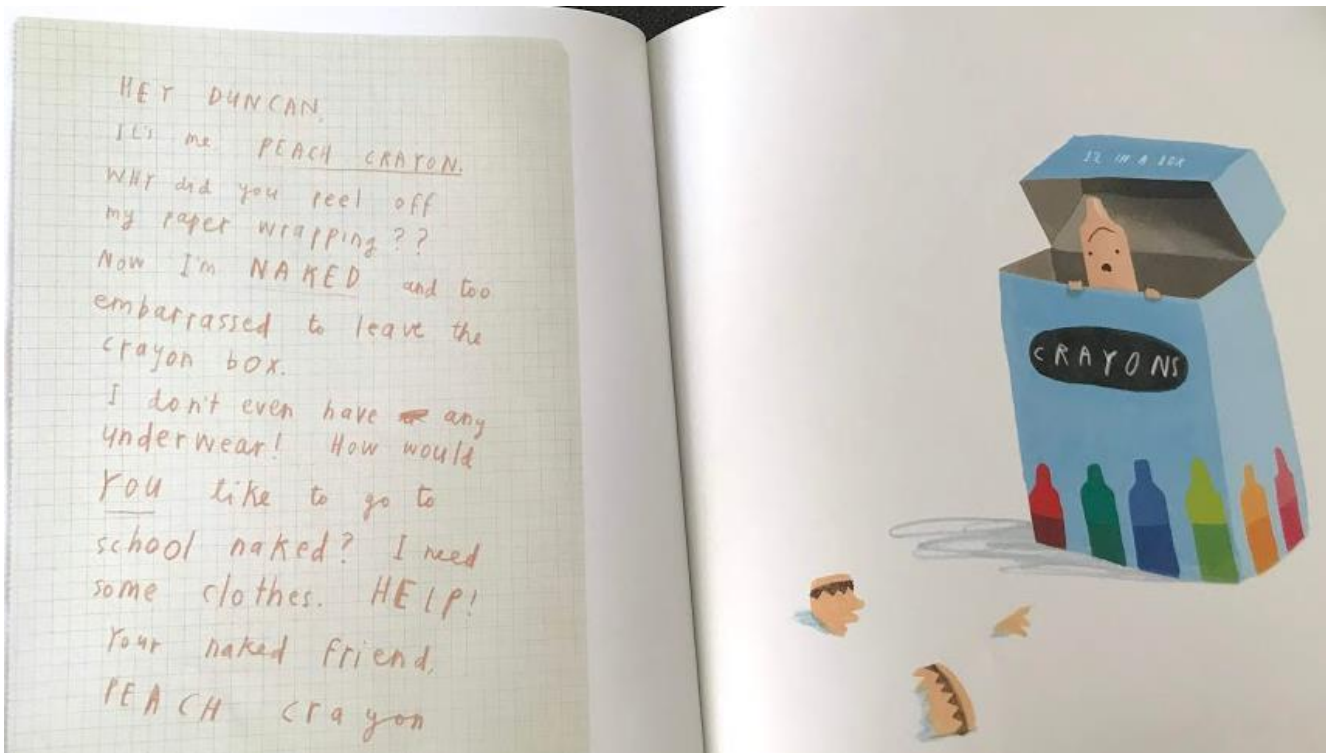 HEY DUNCAN,
It's me PEACH CRAYON.
WHY did you peel off
my paper wrapping??
Now I'm NAKED and too
embarrassed to leave the
crayon box.
I don't even have any
underwear! How would
YOU like to go to
school naked? I need
some clothes. HELP!
Your naked friend,
PEACH crayon
32 IN A BOX
CRAYONS